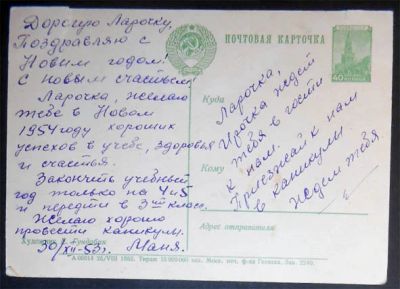 Дорогую Ларочку,
Поздравляю с
Новым годом!
С новым счастьем!
Ларочка, желаю
тебе в Новом
1954 году хороших
успехов в учебе, здоровья
и счастья.
Закончить учебный
год только на 4 и 5
и перейти в 3-ий класс.
Желаю хорошо
провести каникулы.
30/XII-53г. Маня.
ПОЧТОВАЯ КАРТОЧКА
40
Куда
Кому
Ларочка,
Ирочка ждет
тебя в гости
к нам.
Приезжай к нам
в каникулы
Ждем тебя
Адрес отправителя:
Художник Е. Гундобин